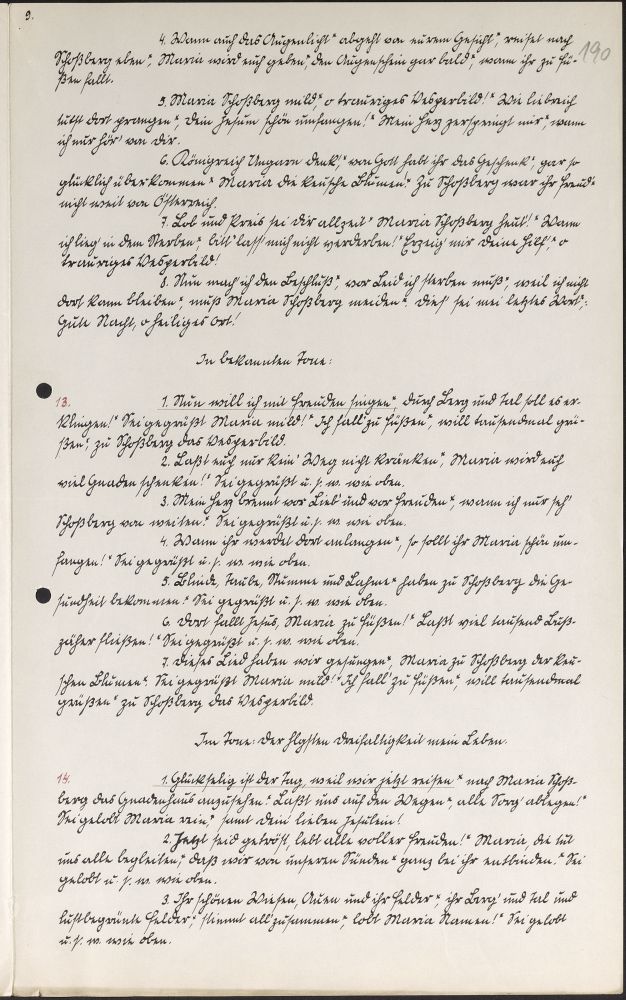 9.
190
4. Wann auch das Augenlicht* abgeht von eurem Gesicht*, reiset nach
Schoßberg eben*, Maria wird euch geben*, den Augenschein gar bald*, wann ihr zu Fü-
ßen fallt.
5. Maria Schoßberg mild*, o trauriges Vesperbild!* Wie liebreich
tuest dort prangen*, dein Jesum schön umfangen!* Mein Herz zerspringt mir*, wann
ich nur hör' von dir.
6. Königreich Ungarn denk!* von Gott habt ihr das Geschenk*, gar so
glücklich überkommen* Maria die keusche Blumen.* Zu Schoßberg war ihr Freud*
nicht weit von Österreich.
7. Lob und Preis sei dir allzeit* Maria Schoßberg heut!* Wann
ich lieg' in dem Sterben*, bitt' lass' mich nicht verderben!* Erzeig' mir deine Hilf'*, o
trauriges Vesperbild!
8. Nun mach' ich den Beschluß*, vor Leid ich sterben muß*, weil ich nicht
dort kann bleiben*, muß Maria Schoßberg meiden*. Dies' sei mei letztes Wort*:
Gute Nacht, o heiliges Ort!
In bekannten Tone:
13. 1. Nun will ich mit Freuden singen*, durch Berg und Tal soll es er-
klingen!* Sei gegrüßt Maria mild!* Ich fall' zu Füßen*, will tausendmal grü-
ßen*, zu Schoßberg das Vesperbild.
2. Laßt euch nur kein' Weg nicht kränken*, Maria wird euch
viel Gnaden schenken!* Sei gegrüßt u. s. w. wie oben.
3. Mein Herz brennt vor Lieb' und vor Freuden*, wann ich nur seh'
Schoßberg von weiten.* Sei gegrüßt u. s. w. wie oben.
4. Wann ihr werdet dort anlangen*, so sollt ihr Maria schön um-
fangen!* Sei gegrüßt u. s. w. wie oben.
5. Blinde, Taube, Stumme und Lahme* haben zu Schoßberg die Ge-
sundheit bekommen.* Sei gegrüßt u. s. w. wie oben.
6. Dort fallt Jesus, Maria zu Füßen!* Laßt viel tausend Buß-
zäher fließen!* Sei gegrüßt u. s. w. wie oben.
7. Dieses Lied haben wir gesungen*, Maria zu Schoßberg der keu-
schen Blumen*. Sei gegrüßt Maria mild!* Ich fall' zu Füßen*, will tausendmal
grüßen* zu Schoßberg das Vesperbild.
Im Tone: Der Hlgsten Dreifaltigkeit mein Leben.
14. 1. Glückselig ist der Tag, weil wir jetzt reisen* nach Maria Schoß-
berg das Gnadenhaus anzusehen.* Laßt uns auf den Wegen*, alle Sorg' ablegen!*
Sei gelobt Maria rein*, samt dein lieben Jesulein!
2. Jetzt seid getröst, lebt alle voller Freuden!* Maria, die tut
uns alle begleiten*, daß wir von unseren Sünden* ganz bei ihr entbinden.* Sei
gelobt u. s. w. wie oben.
3. Ihr schönen Wiesen, Auen und ihr Felder*, ihr Berg' und Tal und
lustbegrünte Felder*, stimmt all' zusammen*, lobt Maria Namen!* Sei gelobt
u. s. w. wie oben.